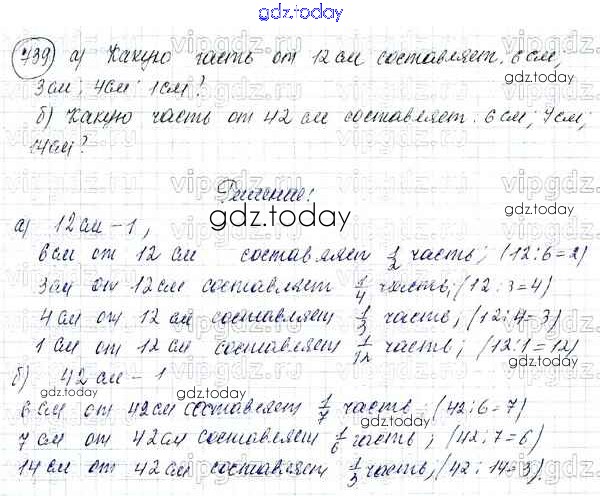 gdz.today
739) а) Какую часть от 12 см составляет: 6 см,
3 см; 4 см; 1 см?
б) Какую часть от 42 см составляет: 6 см; 7 см;
14 см?
Решение:
gdz.today
а) 12 см - 1,
6 см от 12 см составляет 1/2 часть; (12:6=2)
3 см от 12 см составляет 1/4 часть; (12:3=4)
4 см от 12 см составляет 1/3 часть; (12:4=3)
1 см от 12 см составляет 1/12 часть; (12:1=12)
gdz.today
б) 42 см - 1
gdz.today
6 см от 42 см составляет 1/7 часть; (42:6=7)
7 см от 42 см составляет 1/6 часть; (42:7=6)
14 см от 42 см составляет 1/3 часть; (42:14=3).
gdz.today